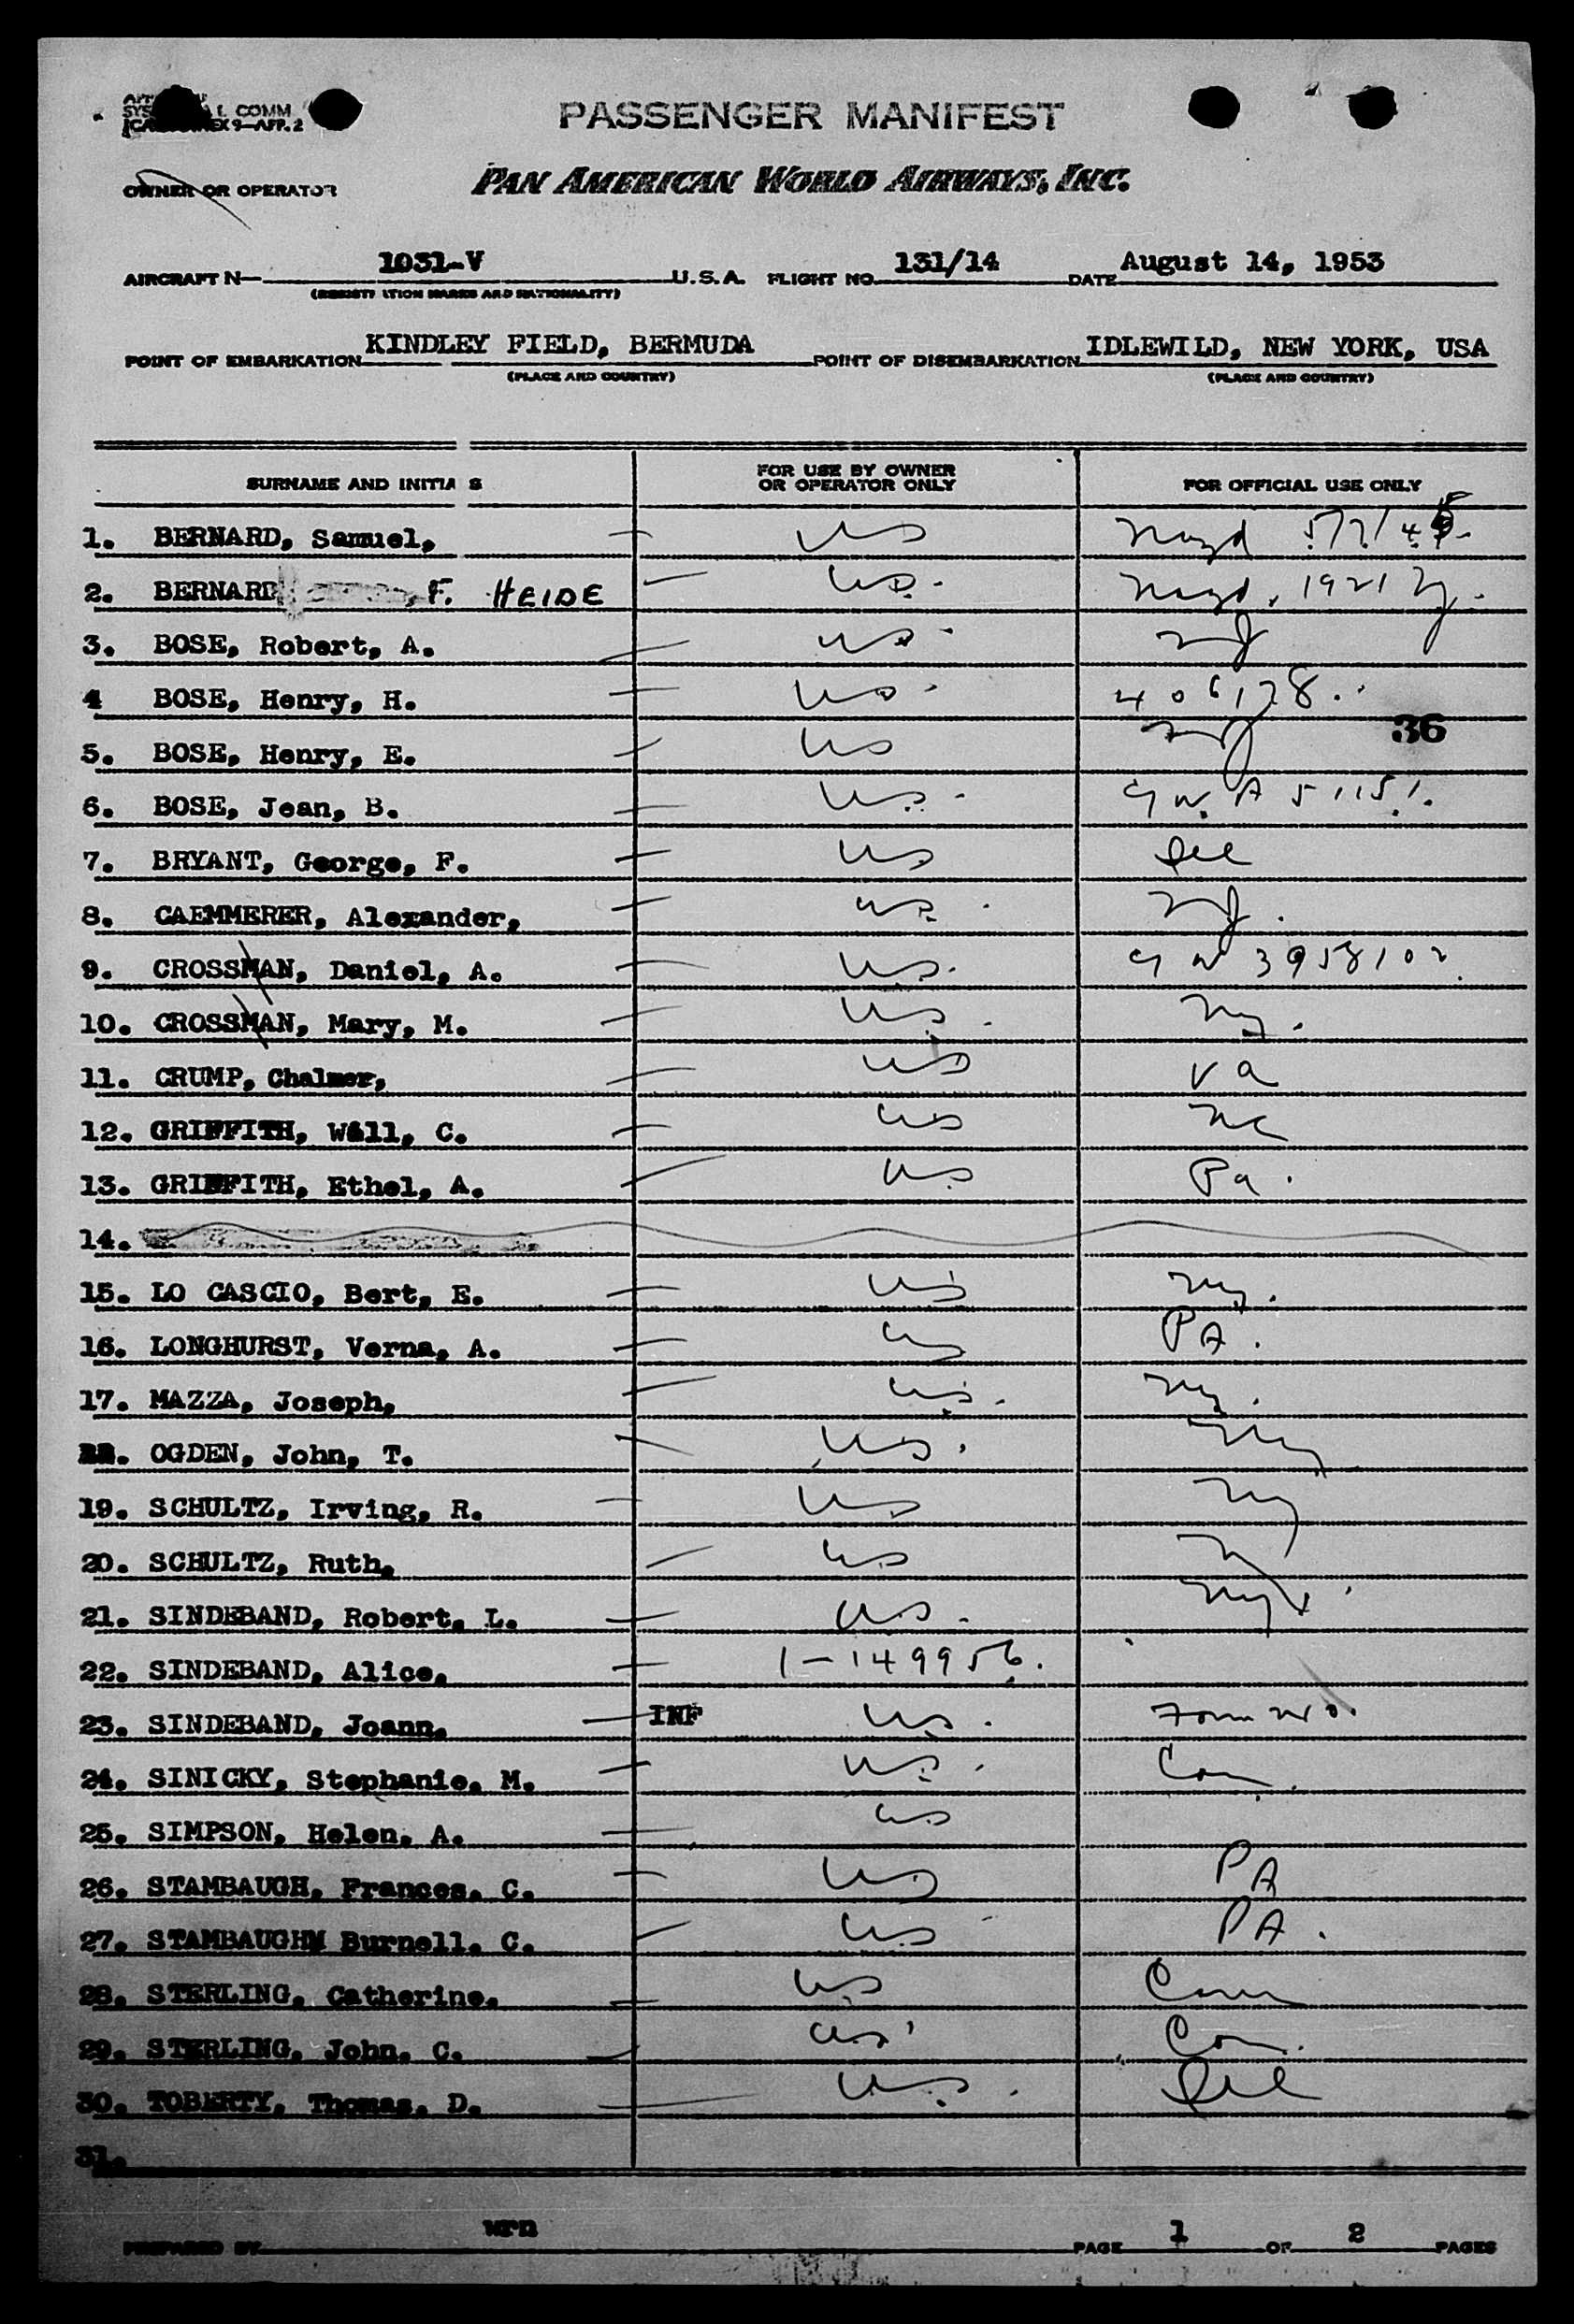 L COMM
9—APP. 2
PASSENGER MANIFEST
OWNER OR OPERATOR
PAN AMERICAN WORLD AIRWAYS, INC.
AIRCRAFT N— 1031-V U.S.A. FLIGHT NO. 131/14 DATE August 14, 1953
(REGISTRATION MARKS AND NATIONALITY)
POINT OF EMBARKATION KINDLEY FIELD, BERMUDA POINT OF DISEMBARKATION IDLEWILD, NEW YORK, USA
(PLACE AND COUNTRY) (PLACE AND COUNTRY)
SURNAME AND INITIA S FOR USE BY OWNER OR OPERATOR ONLY FOR OFFICIAL USE ONLY
1. BERNARD, Samuel, US
2. BERNARD F. HEIDE US. 1921 NY.
3. BOSE, Robert, A. US NJ
4 BOSE, Henry, H. US 406178.
36
5. BOSE, Henry, E. US NJ
6. BOSE, Jean, B. US. A 51151.
7. BRYANT, George, F. US
8. CAEMMERER, Alexander, US. NJ.
9. CROSSMAN, Daniel, A. US. 3958102
10. CROSSMAN, Mary, M. US. NY.
11. CRUMP, Chalmer, US Va
12. GRIFFITH, Will, C. US NC
13. GRIFFITH, Ethel, A. US Pa.
14.
15. LO CASCIO, Bert, E. US NY.
16. LONGHURST, Verna, A. US PA.
17. MAZZA, Joseph, US. NY.
OGDEN, John, T. US. NY
19. SCHULTZ, Irving, R. US NY
20. SCHULTZ, Ruth, US NY
21. SINDEBAND, Robert, L. US. NY
22. SINDEBAND, Alice, 1-149956.
23. SINDEBAND, Joann, INF US.
24. SINICKY, Stephanie, M. US. Con.
25. SIMPSON, Helen, A. US
26. STAMBAUGH, Frances, C. US PA
27. STAMBAUGHM Burnell, C. US PA.
28. STERLING, Catherine, US Conn
29. STERLING, John, C. US Con.
30. TOBERTY, Thomas, D. US.
31.
PREPARED BY wrn PAGE 1 OF 2 PAGES